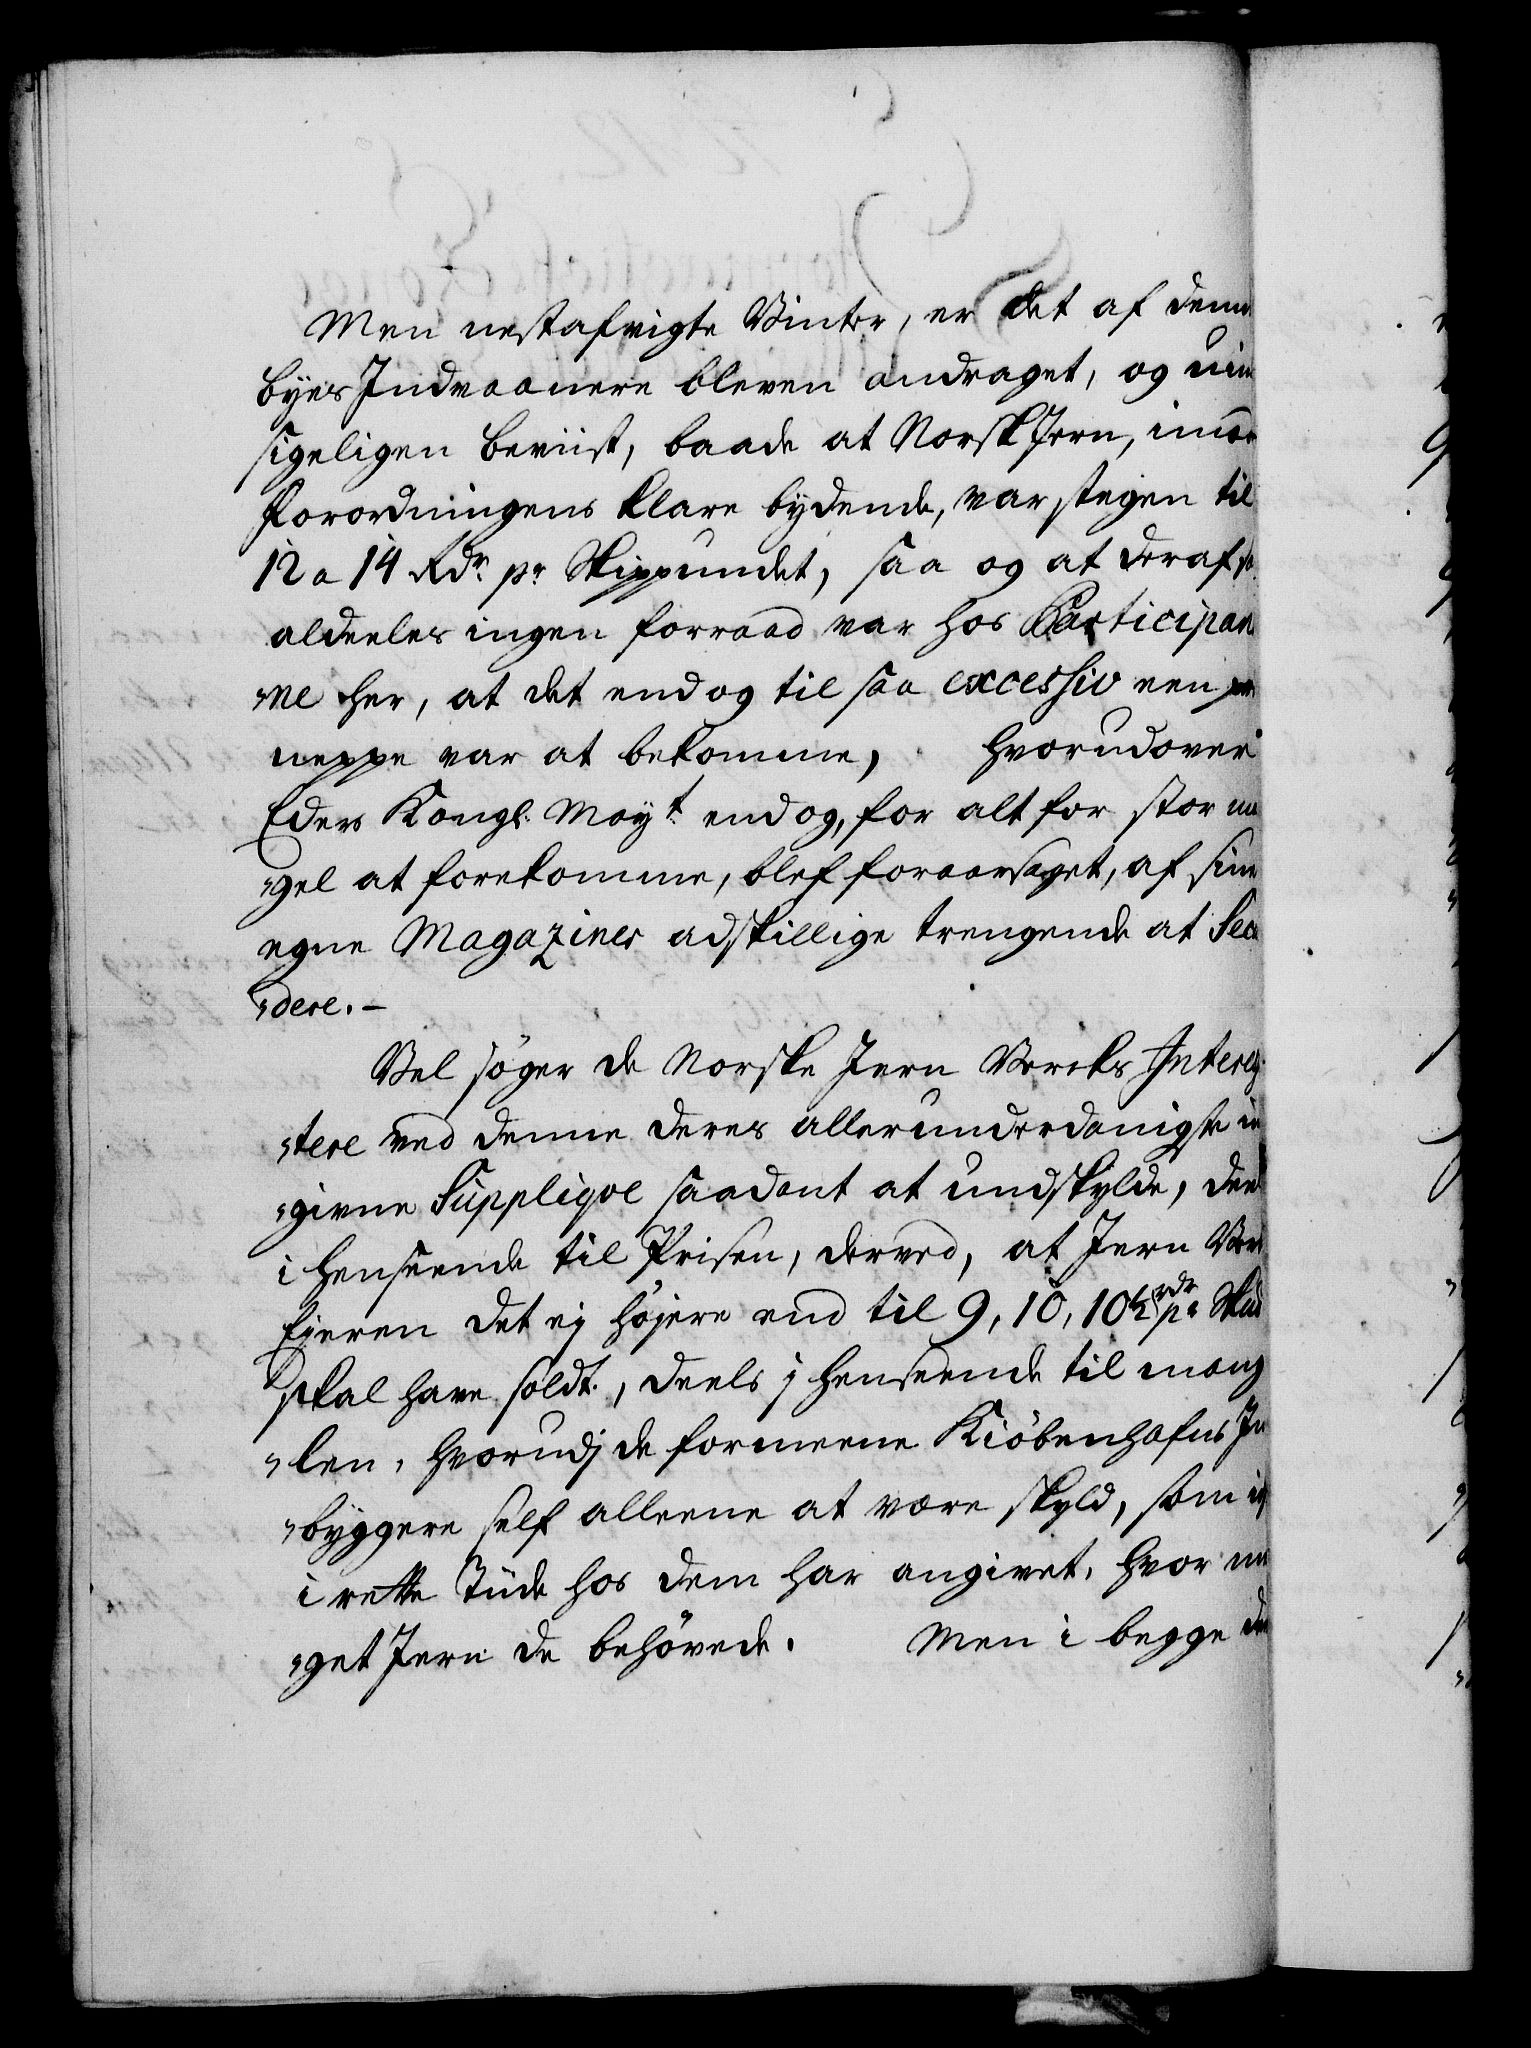 Men nestafvigte Vinter, er det af denne
byes Indvaanere bleven andraget, og uim
sigeligen beviist, baade at Norsk Jern, imod
Forordningens klare bydende, var stegen til
12 a 14 Rdr. pr. Skippundet, saa og at deraf sa
aldeeles ingen forraad var hos Participan
"ne her, at det endog til saa excessiv een
neppe var at bekomme, hvorudover
Eders Kongl: Mayt. endog, for alt for stor m
"gel at forekomme, blef foraarsaget, af sine
egne Magaziner adskillige trengende at Sec
"dere.-
Vel søger de Norske Jern Vercks Interes
"tere ved denne deres allerunderdanigste in
"givne Suppliqve saadant at undskylde, deel
i henseende til Prisen, derved, at Jern Ver
Ejeren det ej højere end til 9, 10, 10½ rdr pr Skd
skal have soldt, deels j henseende til mang
"len, hvorudj de formeene Kiöbenhafns In
"byggere self alleene at være skyld, som ej
i rette Tiide hos dem har angivet, hvor me
"get Jern de behövede. Men i begge de